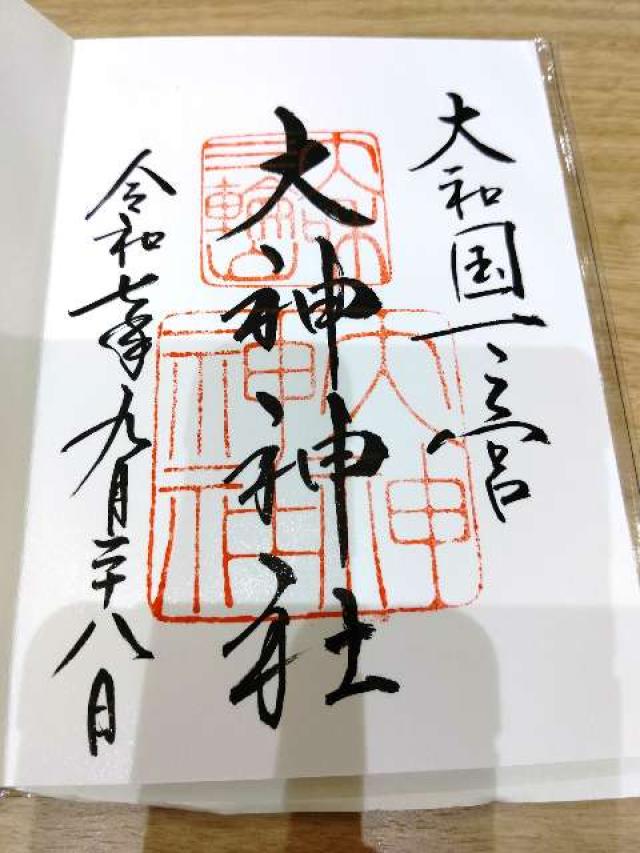 大和国一之宮
大神神社
令和七年九月二十八日
大神神社
三輪山